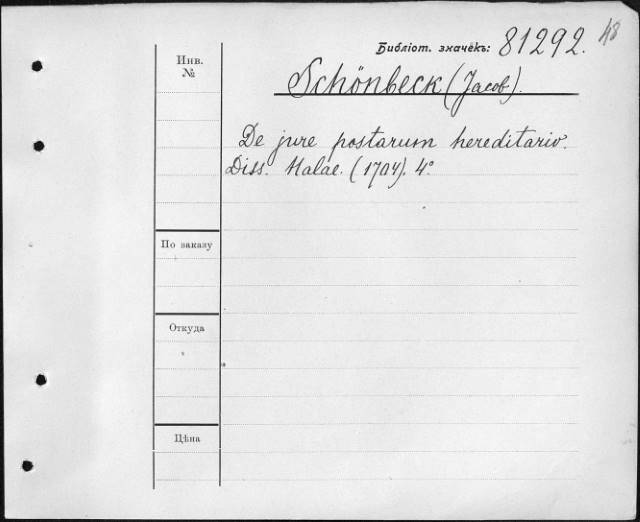 48
Библіот. значекъ: 81292.
Инв.
№
Schönbeck (Jacob).
De jure postarum hereditario.
Diss. Halae. (1704). 4°
По заказу
Откуда
Цѣна